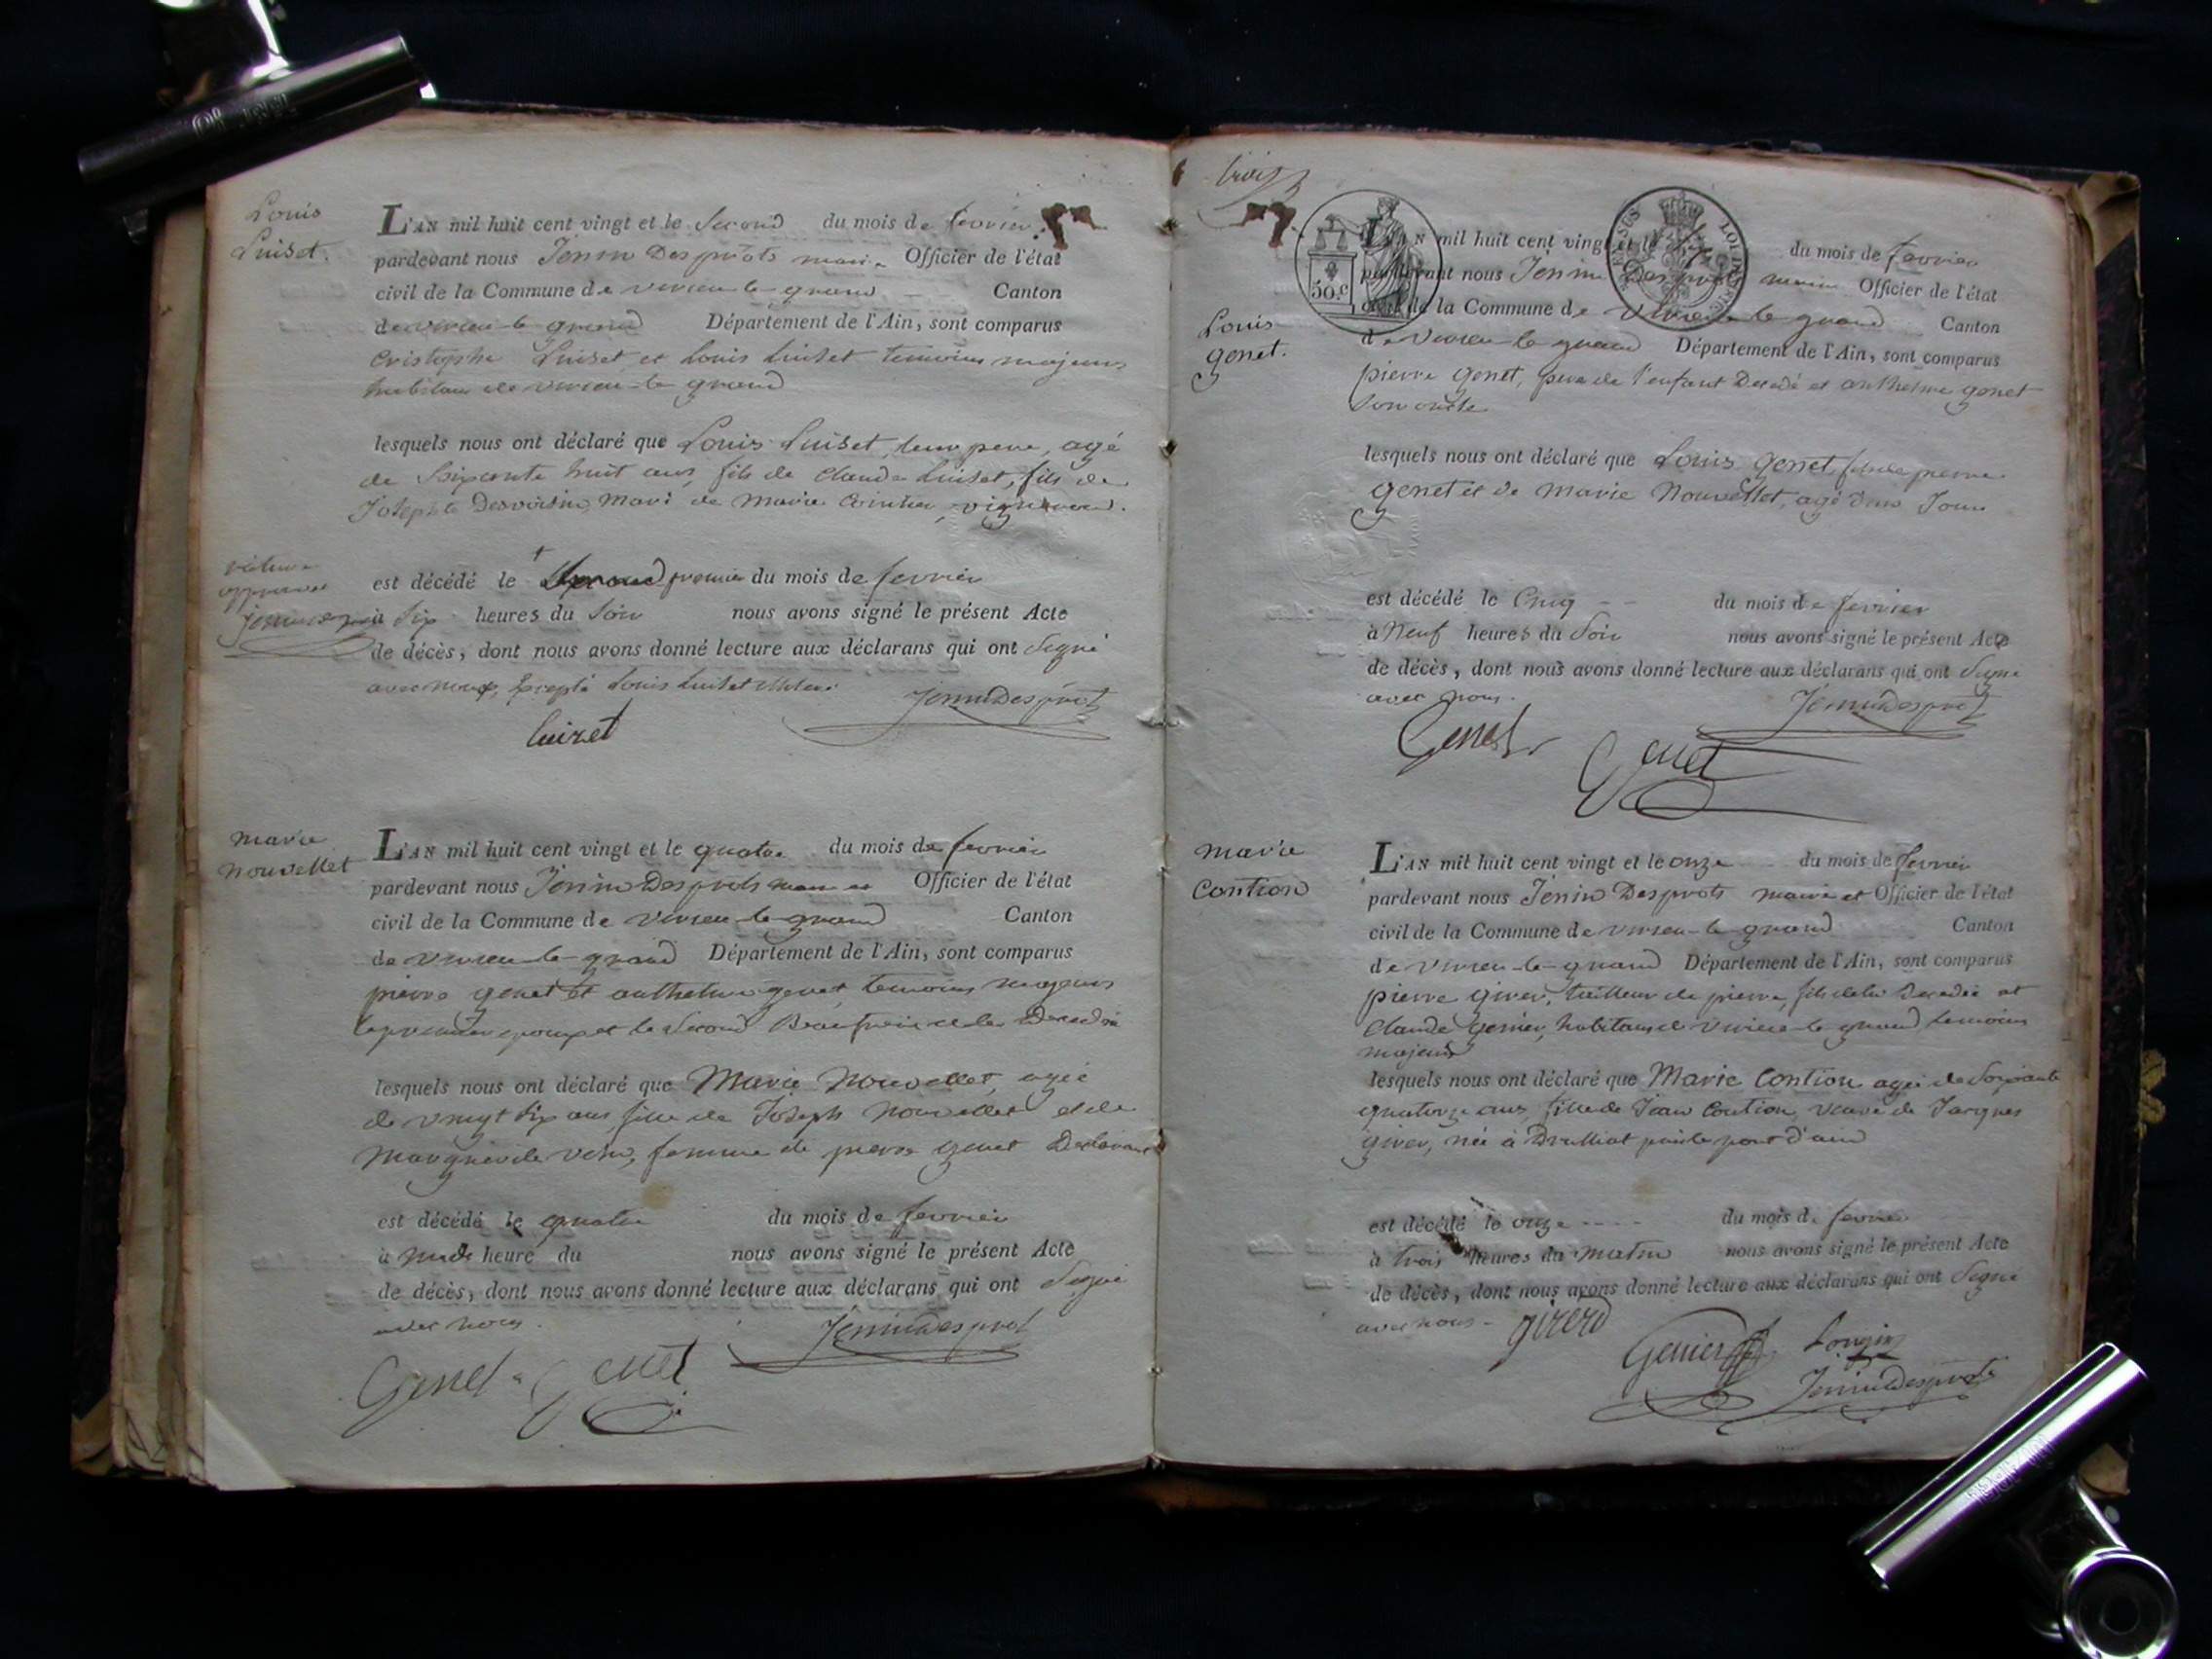 Louis
Luiset.
L'AN mil huit cent vingt et le Second du mois de fevrier
pardevant nous Jenin Desprots maire Officier de l'état
civil de la Commune de virieu-le-grand Canton
de virieu-le-grand Département de l'Ain, sont comparus
Cristophe Luiset et Louis Luiset temoins majeurs
habitans de virieu-le-grand
lesquels nous ont déclaré que Louis Luiset, leur pere, agé
de Soixante huit ans, fils de Claude Luiset, fils de
Joseph Desvoisin, Mari de Marie Cointier, vigneron.
rature
approuvée
est décédé le premier du mois de fevrier
à Six heures du Soir nous avons signé le présent Acte
de décès, dont nous avons donné lecture aux déclarans qui ont Signé
avec nous, Excepté Louis Luiset illitere.
JeninDesprots
luizet
marie
Nouvellet
L'AN mil huit cent vingt et le quatre du mois de fevrier
pardevant nous Jenin Desprots maire et Officier de l'état
civil de la Commune de virieu-le-grand Canton
de virieu-le-grand Département de l'Ain, sont comparus
pierre genet et anthelme genet, temoins majeurs
le premier epoux et le Second Beau frere de la Decedée
lesquels nous ont déclaré que Marie Nouvellet, agée
de vingt Six ans, fille de Joseph Nouvellet et de
Marguerite femme de pierre genet Declarant
est décédé le quatre du mois de fevrier
à midi heure du nous avons signé le présent Acte
de décès, dont nous avons donné lecture aux déclarans qui ont Signé
avec nous.
JeninDesprots
Genet Genet
trois
50.c
L'AN mil huit cent vingt et le du mois de fevrier
pardevant nous Jenin Desprots maire Officier de l'état
civil de la Commune de virieu-le-grand Canton
Louis
genet.
de virieu-le-grand Département de l'Ain, sont comparus
pierre genet, pere de l'enfant Decedé et anthelme genet
Son oncle
lesquels nous ont déclaré que Louis genet, fils de pierre
genet et de Marie Nouvellet, agé d'un Jour
est décédé le Cinq du mois de fevrier
à Neuf heures du Soir nous avons signé le présent Acte
de décès, dont nous avons donné lecture aux déclarans qui ont Signé
avec nous.
JeninDesprots
Genet Genet
Marie
Contion
L'AN mil huit cent vingt et le onze du mois de fevrier
pardevant nous Jenin Desprots maire et Officier de l'état
civil de la Commune de virieu-le-grand Canton
de virieu-le-grand Département de l'Ain, sont comparus
pierre girer, tailleur de pierre, fils de la Decedée et
Claude genier, habitans de virieu-le-grand temoins
majeurs
lesquels nous ont déclaré que Marie Contion agée de Soixante
quatorze ans, fille de Jean Contion, veuve de Jacques
girer, née à Druilliat prés le pont d'ain
est décédé le onze du mois de fevrier
à trois heures du Matin nous avons signé le présent Acte
de décès, dont nous avons donné lecture aux déclarans qui ont Signé
avec nous - girerd
Genier Longin
JeninDesprots